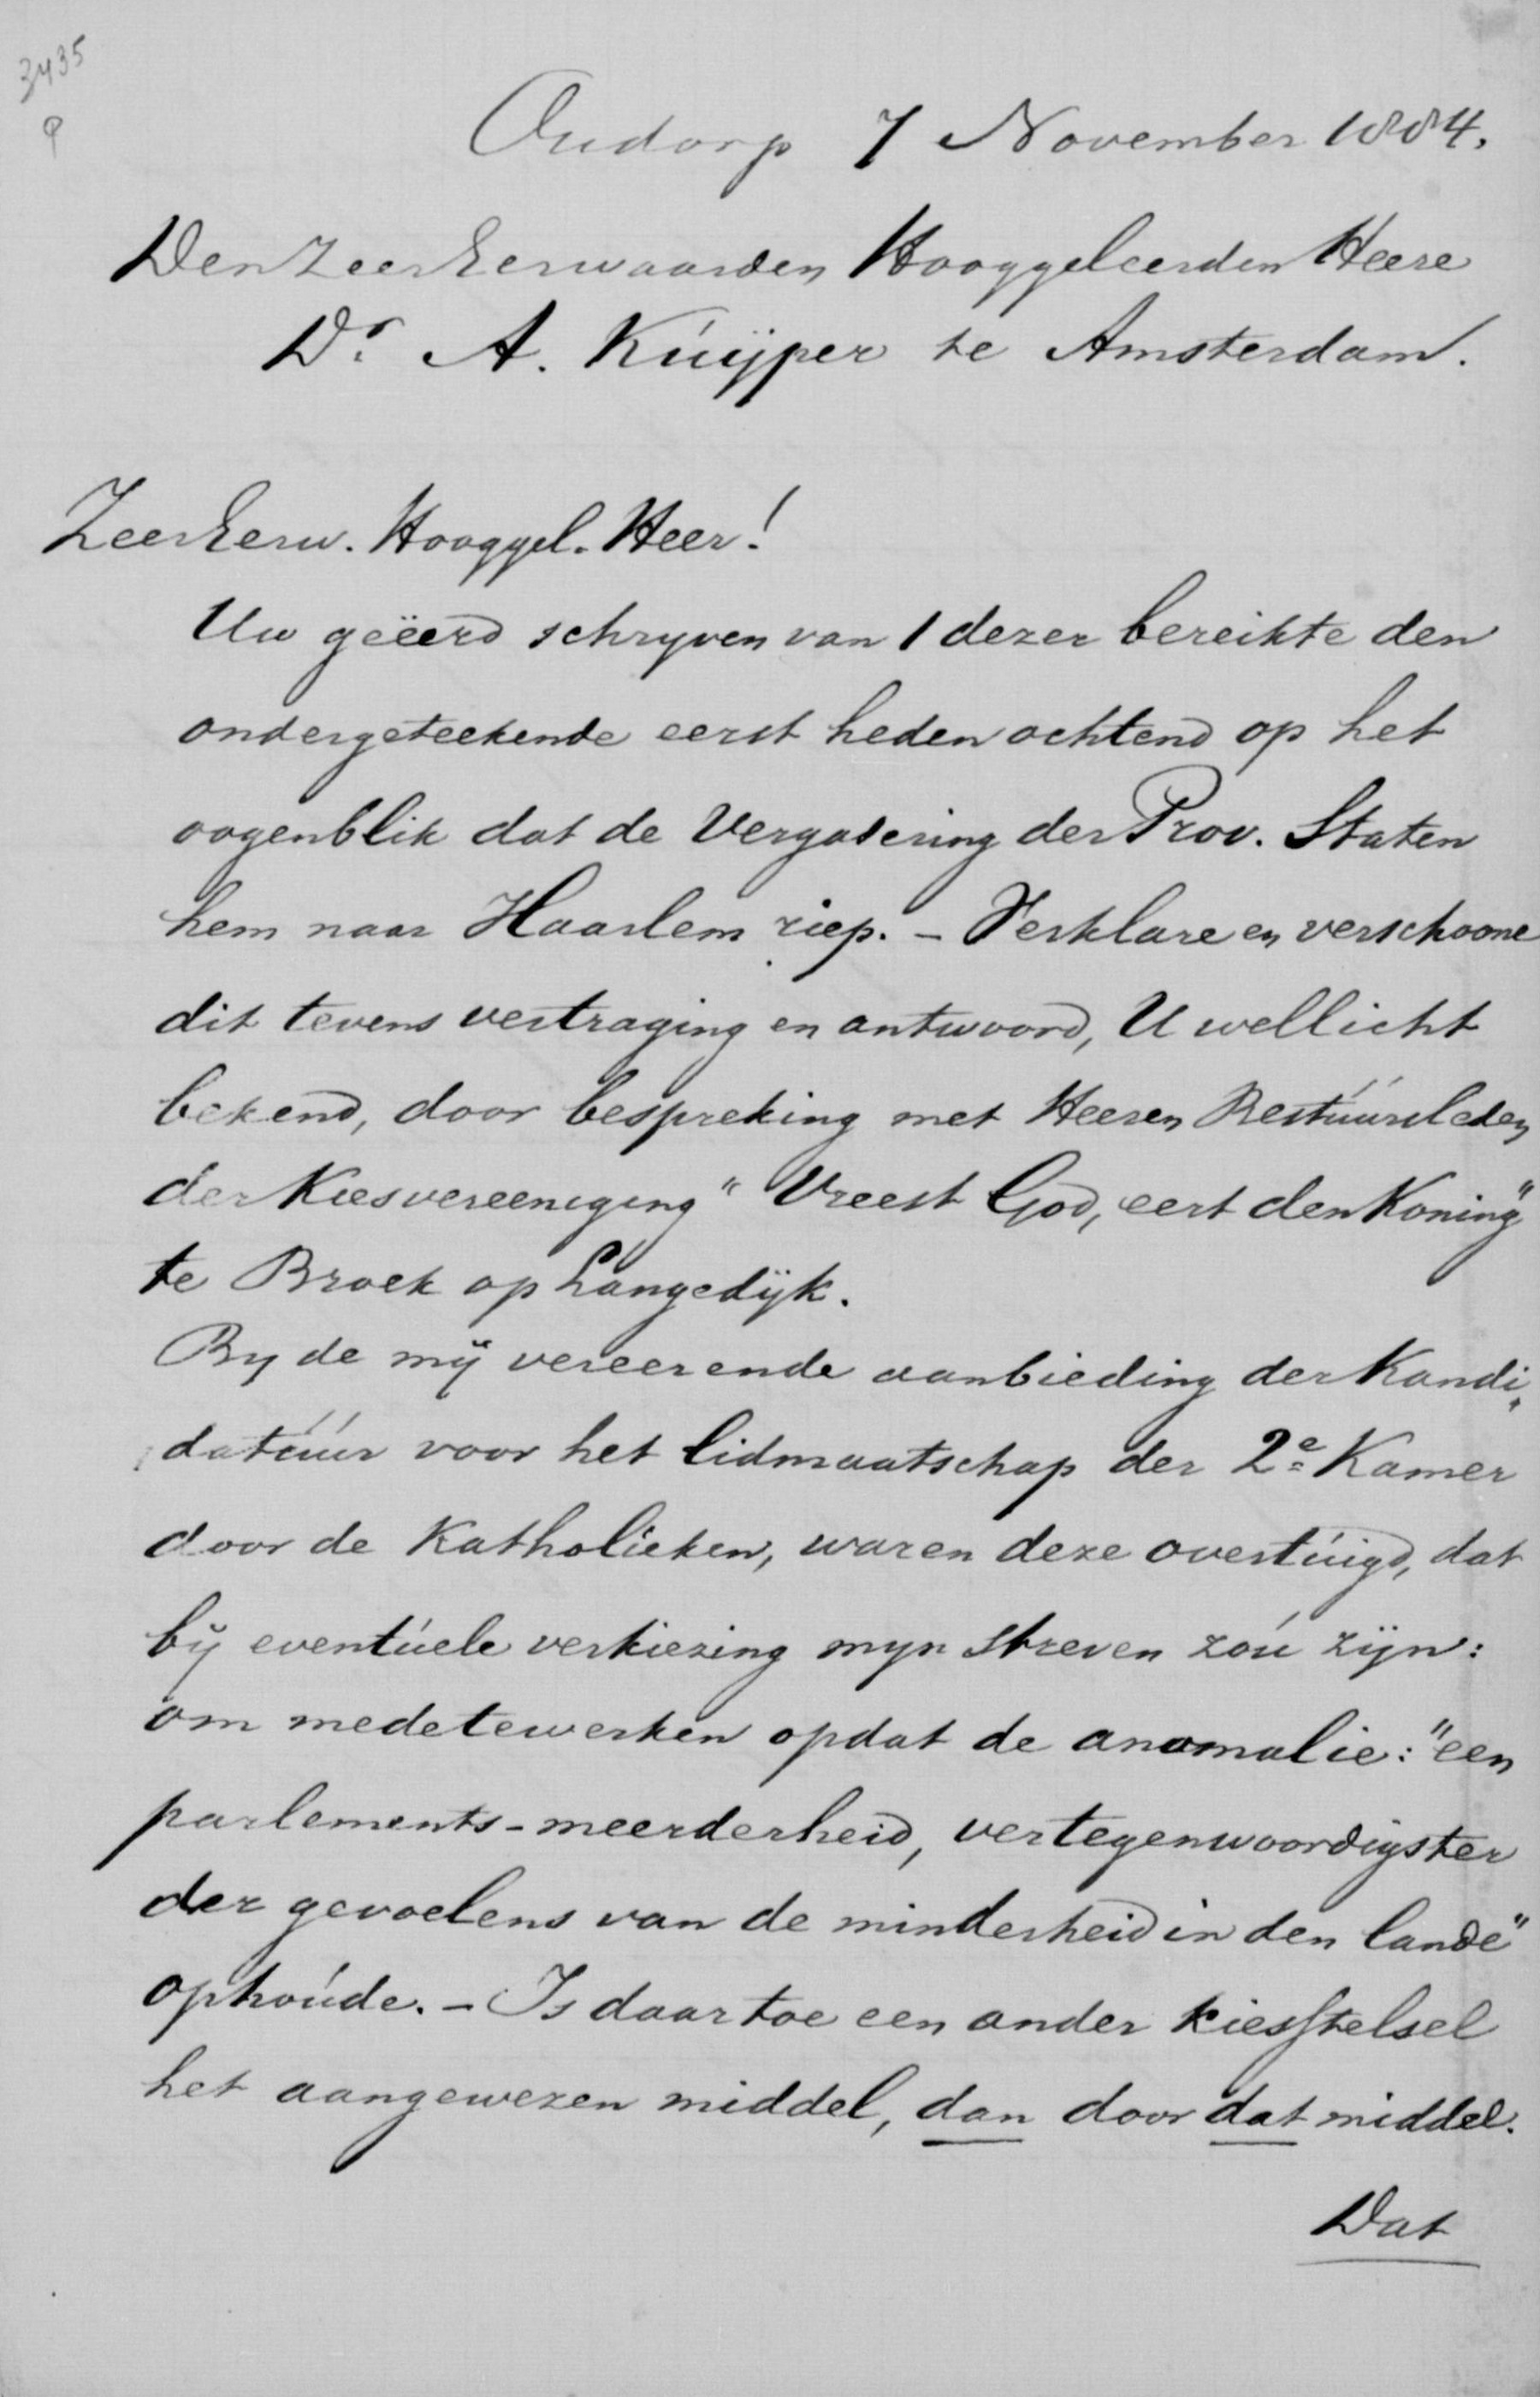 3435
Oudorp 7 November 1884.
Den Zeer Eerwaarden Hooggeleerden Heere
Dr. A. Kuijper te Amsterdam.
Zeer Eerw. Hooggel. Heer!
Uw geëerd schryven van 1 dezer bereikte den
ondergeteekende eerst heden ochtend op het
oogenblik dat de Vergadering der Prov. Staten
hem naar Haarlem riep. – Verklare en verschoone
dit tevens vertraging en antwoord, U wellicht
bekend, door bespreking met Heeren Bestuursleden
der Kiesvereeniging "Vreest God, eert den Koning"
te Broek op Langedijk.
By de mij vereerende aanbieding der Kandi-
datuur voor het lidmaatschap der 2e Kamer
door de Katholieken, waren deze overtuigd, dat
bij eventuele verkiezing myn streven zou zijn:
om medetewerken opdat de anomalie: "een
parlements-meerderheid, vertegenwoordigster
der gevoelens van de minderheid in den lande"
ophoude. – Is daartoe een ander kiesstelsel
het aangewezen middel, dan door dat middel.
Dat